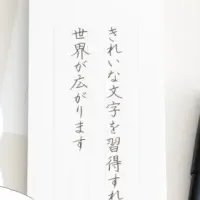 きれいな文字を習得すれ
世界が広がります